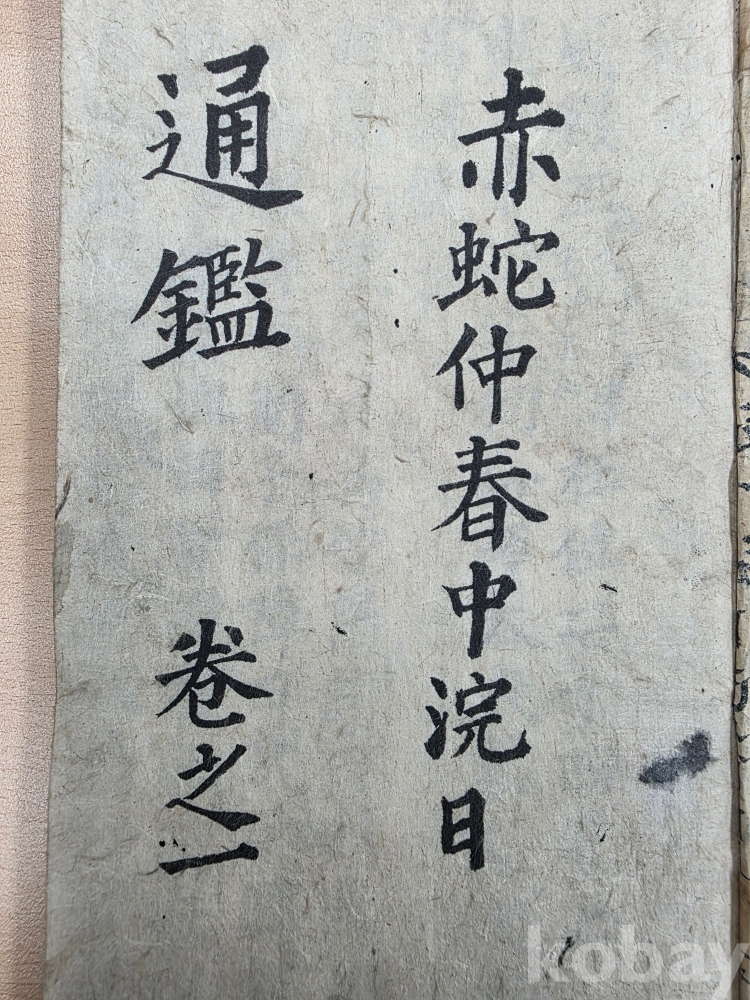 赤蛇仲春中浣日
通鑑 卷之一
kobay